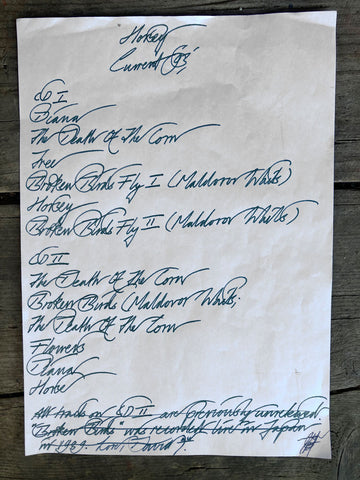 Horsey
Current 93
CD I
Diana
The Death Of The Corn
Tree
Broken Birds Fly I (Maldoror Waits)
Horsey
Broken Birds Fly II (Maldoror Waits)
CD II
The Death Of The Corn
Broken Birds (Maldoror Waits)
The Death Of The Corn
Flowers
Diana
Horse
All tracks on CD II are previously unreleased
"Broken Birds" was recorded live in Japan
in 1989. Love, David